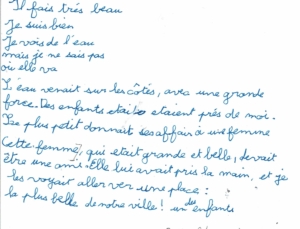 Il fais trés beau
Je suis bien
Je vois de l'eau
mais je ne sais pas
où elle va
L'eau venait sur les côtés, avec une grande
force. Des enfants etaient près de moi.
Le plus petit donnait ses affair à une femme
Cette femme, qui était grande et belle, devait
être une amie. Elle lui avait pris la main, et je
les voyait aller ver une place :
la plus belle de notre ville! un des enfants